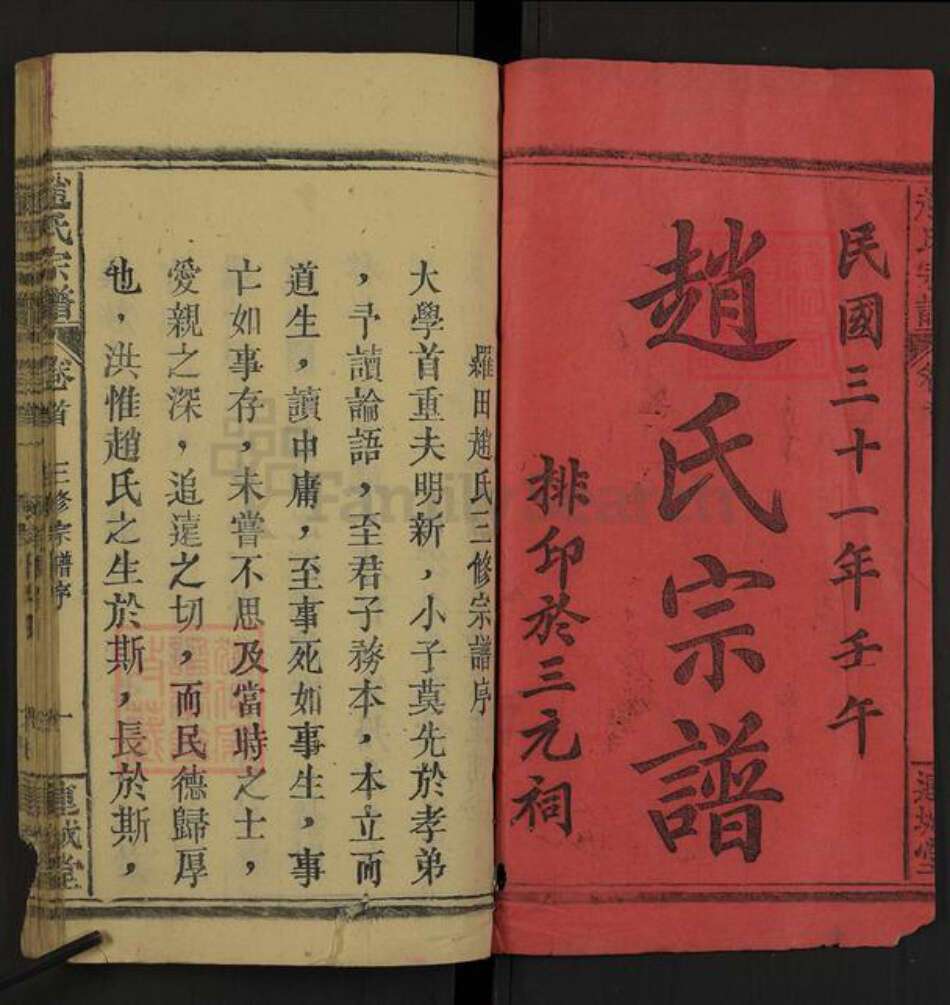 民國三十一年壬午
趙氏宗譜
排印於三元祠
羅田趙氏三修宗譜序
大學首重夫明新，小子莫先於孝弟
，予讀論語，至君子務本，本立而
道生，讀中庸，至事死如事生，事
亡如事存，未嘗不思及當時之士，
愛親之深，追遠之切，而民德歸厚
也，洪惟趙氏之生於斯，長於斯，
趙氏宗譜
卷首
三修宗譜序
一